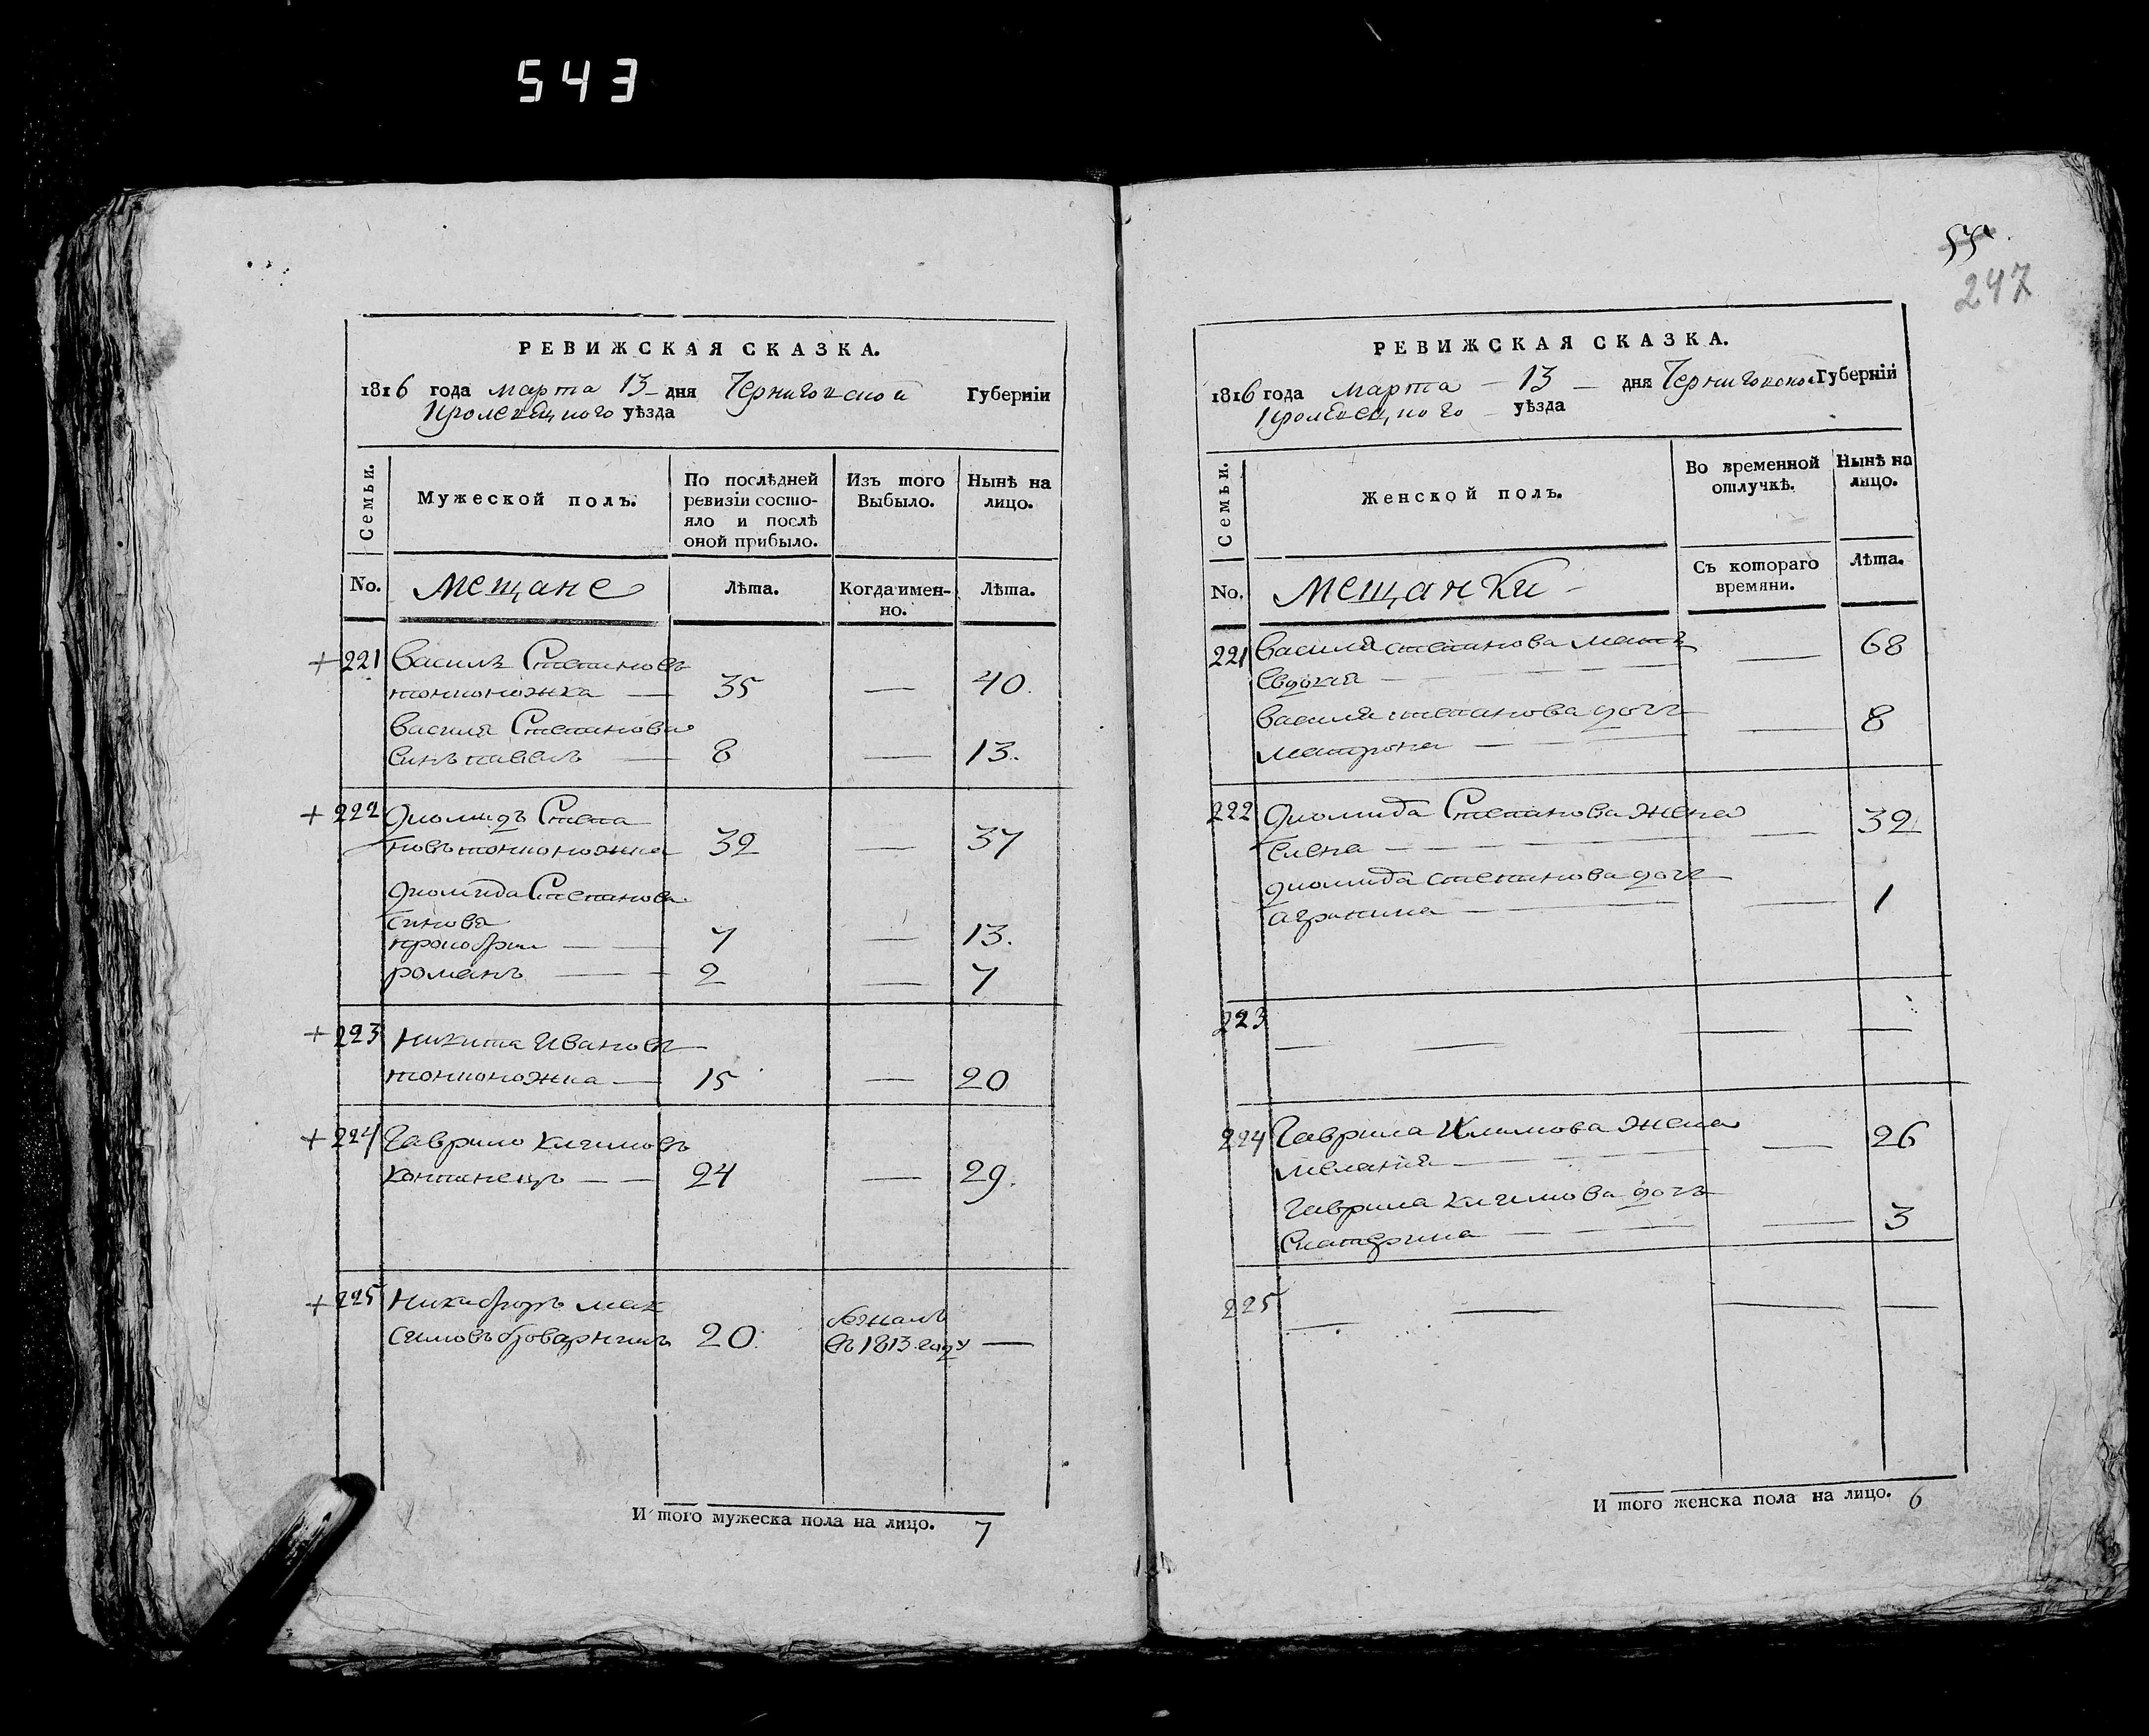 543
РЕВИЖСКАЯ СКАЗКА.
1816 года марта 13 дня Черниговской Губерніи
Кролевецкого уѣзда
Семьи.
Мужеской полъ.
По послѣдней ревизіи состо-
яло и послѣ
оной прибыло.
Изъ того
Выбыло.
Нынѣ на
лицо.
No.
Мещане
Лѣта.
Когда имен-
но.
Лѣта.
+ 221 Василь Степановъ
тонконожка — 35 — 40.
Василя Степанова
синъ павелъ — 8 — 13.
+ 222 Диомидъ Степа
новъ тонконожка 32 — 37
Диомида Степанова
синова
прокофии — 7 — 13.
романъ — 2 — 7
+ 223 Никита Ивановъ
тонконожка — 15 — 20
+ 224 Гаврило Климовъ
— — 24 — 29.
+ 225 Никифоръ мак
симовъ 20. бежалъ
въ 1813 году —
И того мужеска пола на лицо. 7
247
РЕВИЖСКАЯ СКАЗКА.
1816 года марта — 13 — дня Черниговской Губерніи
Кролевецкого уѣзда
Семьи.
Женской полъ.
Во временной
отлучкѣ.
Нынѣ на
лицо.
Съ котораго
времяни.
Лѣта.
No.
Мещанки
221 Василя степанова мать — 68
Евдокия
Василя степанова дочь — 8
матрона
222 Диомида Степанова жена — 32
Елена
диомида степанова дочь — 1
агрипина
223 — — — —
224 Гаврила Климова жена — 26
мелания
Гаврила Климова дочь — 3
Екатерина
225 — — —
И того женска пола на лицо. 6